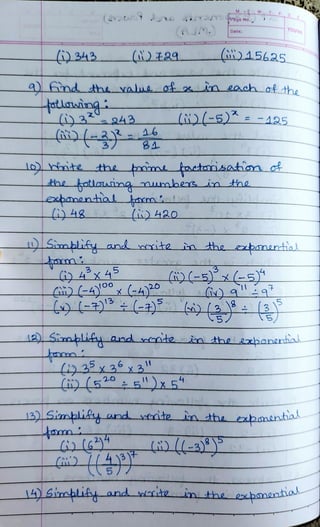 (i) 343 (ii) 729 (iii) 15625
9) Find the value of x in each of the
following :
(i) 3ˣ = 243 (ii) (-5)ˣ = -125
(iii) (-2/3)ˣ = 16/81
10) Write the prime factorisation of
the following numbers in the
exponential form :
(i) 48 (ii) 420
11) Simplify and write in the exponential
form :
(i) 4³ x 4⁵ (ii) (-5)³ x (-5)⁴
(iii) (-4)¹⁰⁰ x (-4)²⁰ (iv) 9¹¹ ÷ 9⁷
(v) (-7)¹³ ÷ (-7)⁵ (vi) (3/5)⁸ ÷ (3/5)⁵
12) Simplify and write in the exponential
form :
(i) 3⁵ x 3⁶ x 3¹¹
(ii) (5²⁰ ÷ 5¹¹) x 5⁴
13) Simplify and write in the exponential
form :
(i) (6²)⁴ (ii) ((-3)⁸)⁵
(iii) ((4/5)³)⁷
14) Simplify and write in the exponential